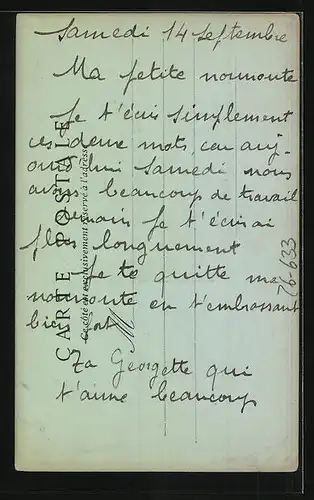 Samedi 14 Septembre
Ma petite nounoute
Je t'écris simplement
ces deux mots, car auj-
ourd'hui samedi nous
avons beaucoup de travail
Demain je t'écrirai
plus longuement
Je te quitte ma
nounoute en t'embrassant
bien fort
Ta Georgette qui
t'aime beaucoup
CARTE POSTALE
Ce côté est exclusivement réservé à l'adresse
76-633